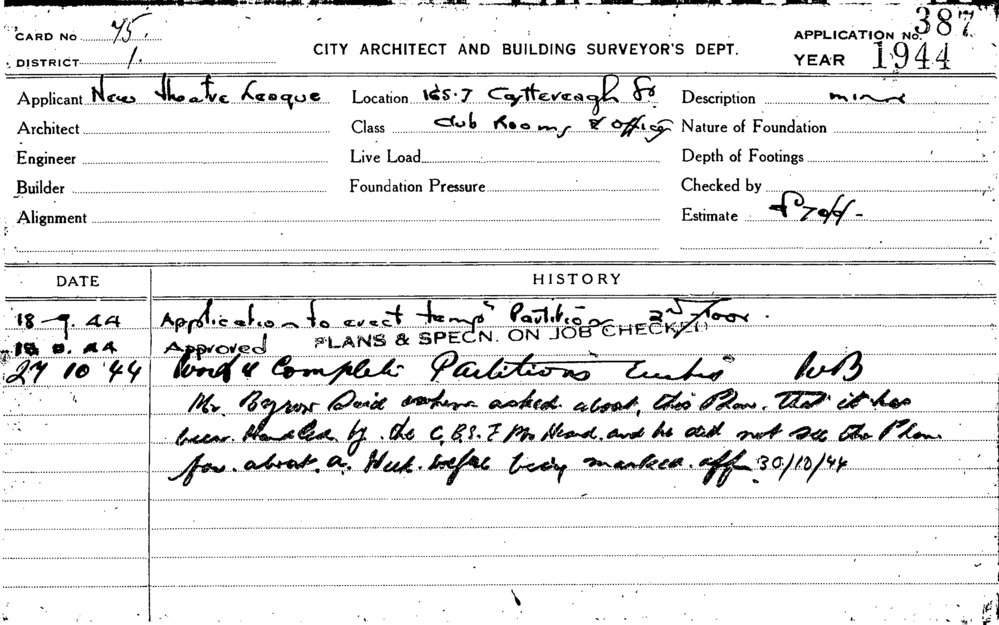 CARD No 75.
APPLICATION No. 387
CITY ARCHITECT AND BUILDING SURVEYOR'S DEPT.
DISTRICT 1.
YEAR 1944
Applicant New Theatre League Location 165-7 Castlereagh St Description minor
Architect Class Club Rooms & Offices Nature of Foundation
Engineer Live Load Depth of Footings
Builder Foundation Pressure Checked by
Alignment Estimate £70/-/-
DATE HISTORY
18-9.44 Application to erect temp Partition 2nd floor.
44 Approved PLANS & SPECN. ON JOB CHECKED
27 10 44 Work Complete Partitions WB
Mr. Said when asked about this Plan. That it has
been Handled by the C.B.S. & Mr Heard. and he did not see the Plan
for about a Week before being marked off 30/10/44